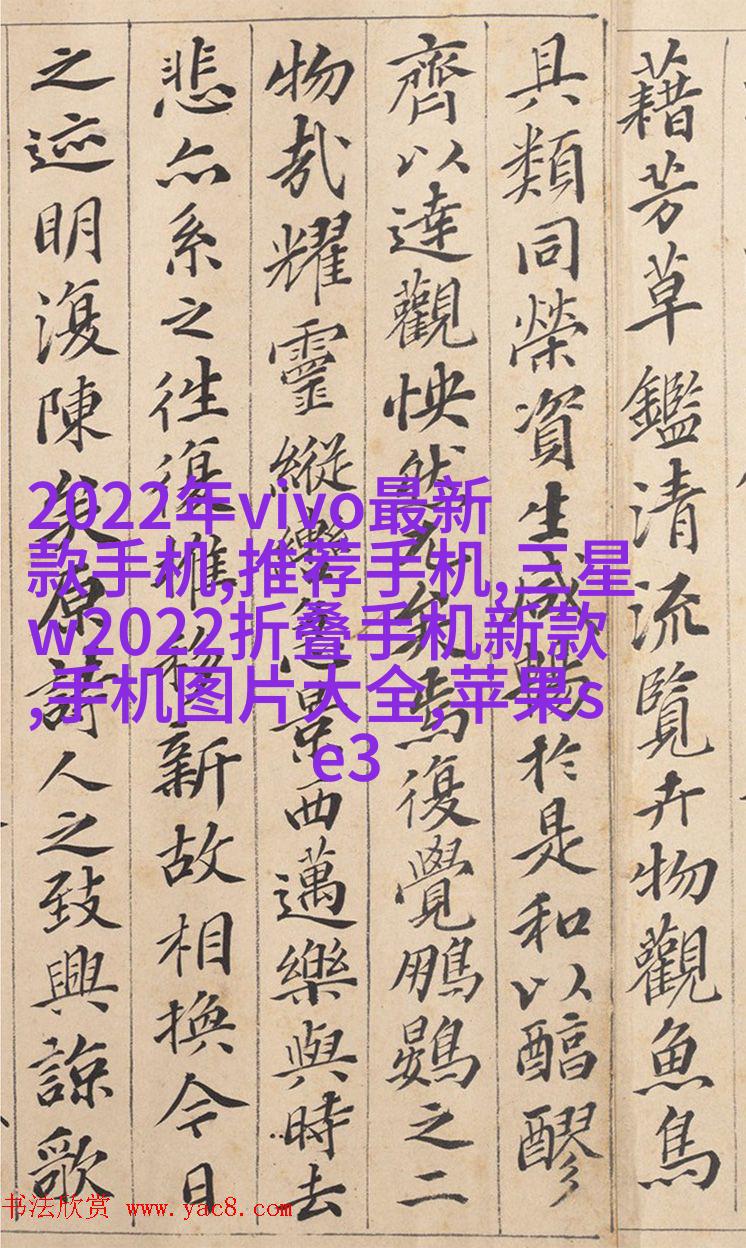 藉芳草鑑清流覽卉物觀魚鳥
具類同榮資生咸暢於是和以醕醪
齊以達觀怏然兀矣焉復覺鵬鷃之二
物哉耀靈縱轡急景西邁樂與時去
悲亦系之往復推移新故相換今日
之迹明復陳矣原詩人之致興諒歌
2022年vivo最新
款手机,推荐手机,三星
w2022折叠手机新款
,手机图片大全,苹果s
e3
书法欣赏 www.yac8.com